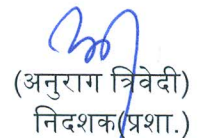 (अनुराग त्रिवेदी)
निदशक(प्रशा.)